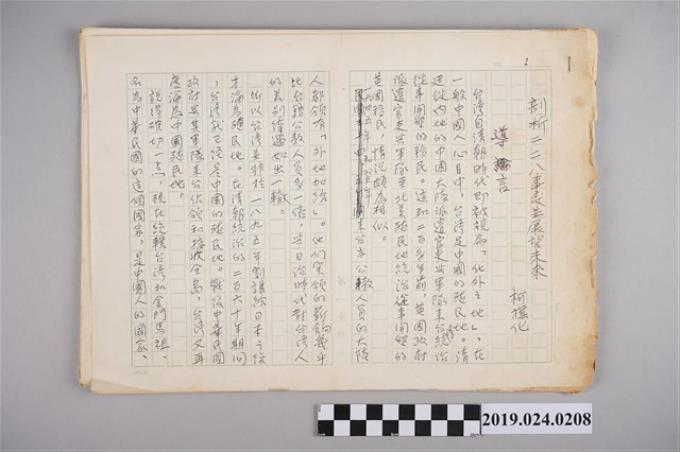 1
剖析二二八事變並展望未來
柯旗化
導言
台灣自清朝時代即被視為「化外之地」,在
一般中國人心目中,台灣是中國的殖民地。清
從事開墾的移民。這和二百多年前,英國政府
派遣官吏與軍隊至北美殖民地統治從事開墾的
英國移民,情況頗為相似。
來台市公教人員的大陸
人都領有「外地加給」。他們實領的薪餉幾乎
比台籍公教人員多一倍,與日治時代對台灣人
的差別待遇如出一轍。
所以台灣並非於一八九五年割讓給日本之後
才淪為殖民地。在清朝統治的二百六十年期間
,台灣就已經是中國的殖民地。戰後中華民國
政府與其軍隊來台佔領和接收全島,台灣又再
度淪為中國殖民地。
說得確切一點,現在統轄台灣和金門馬祖,
名為中華民國的這個國家,是中國人的國家、
2019.024.0208